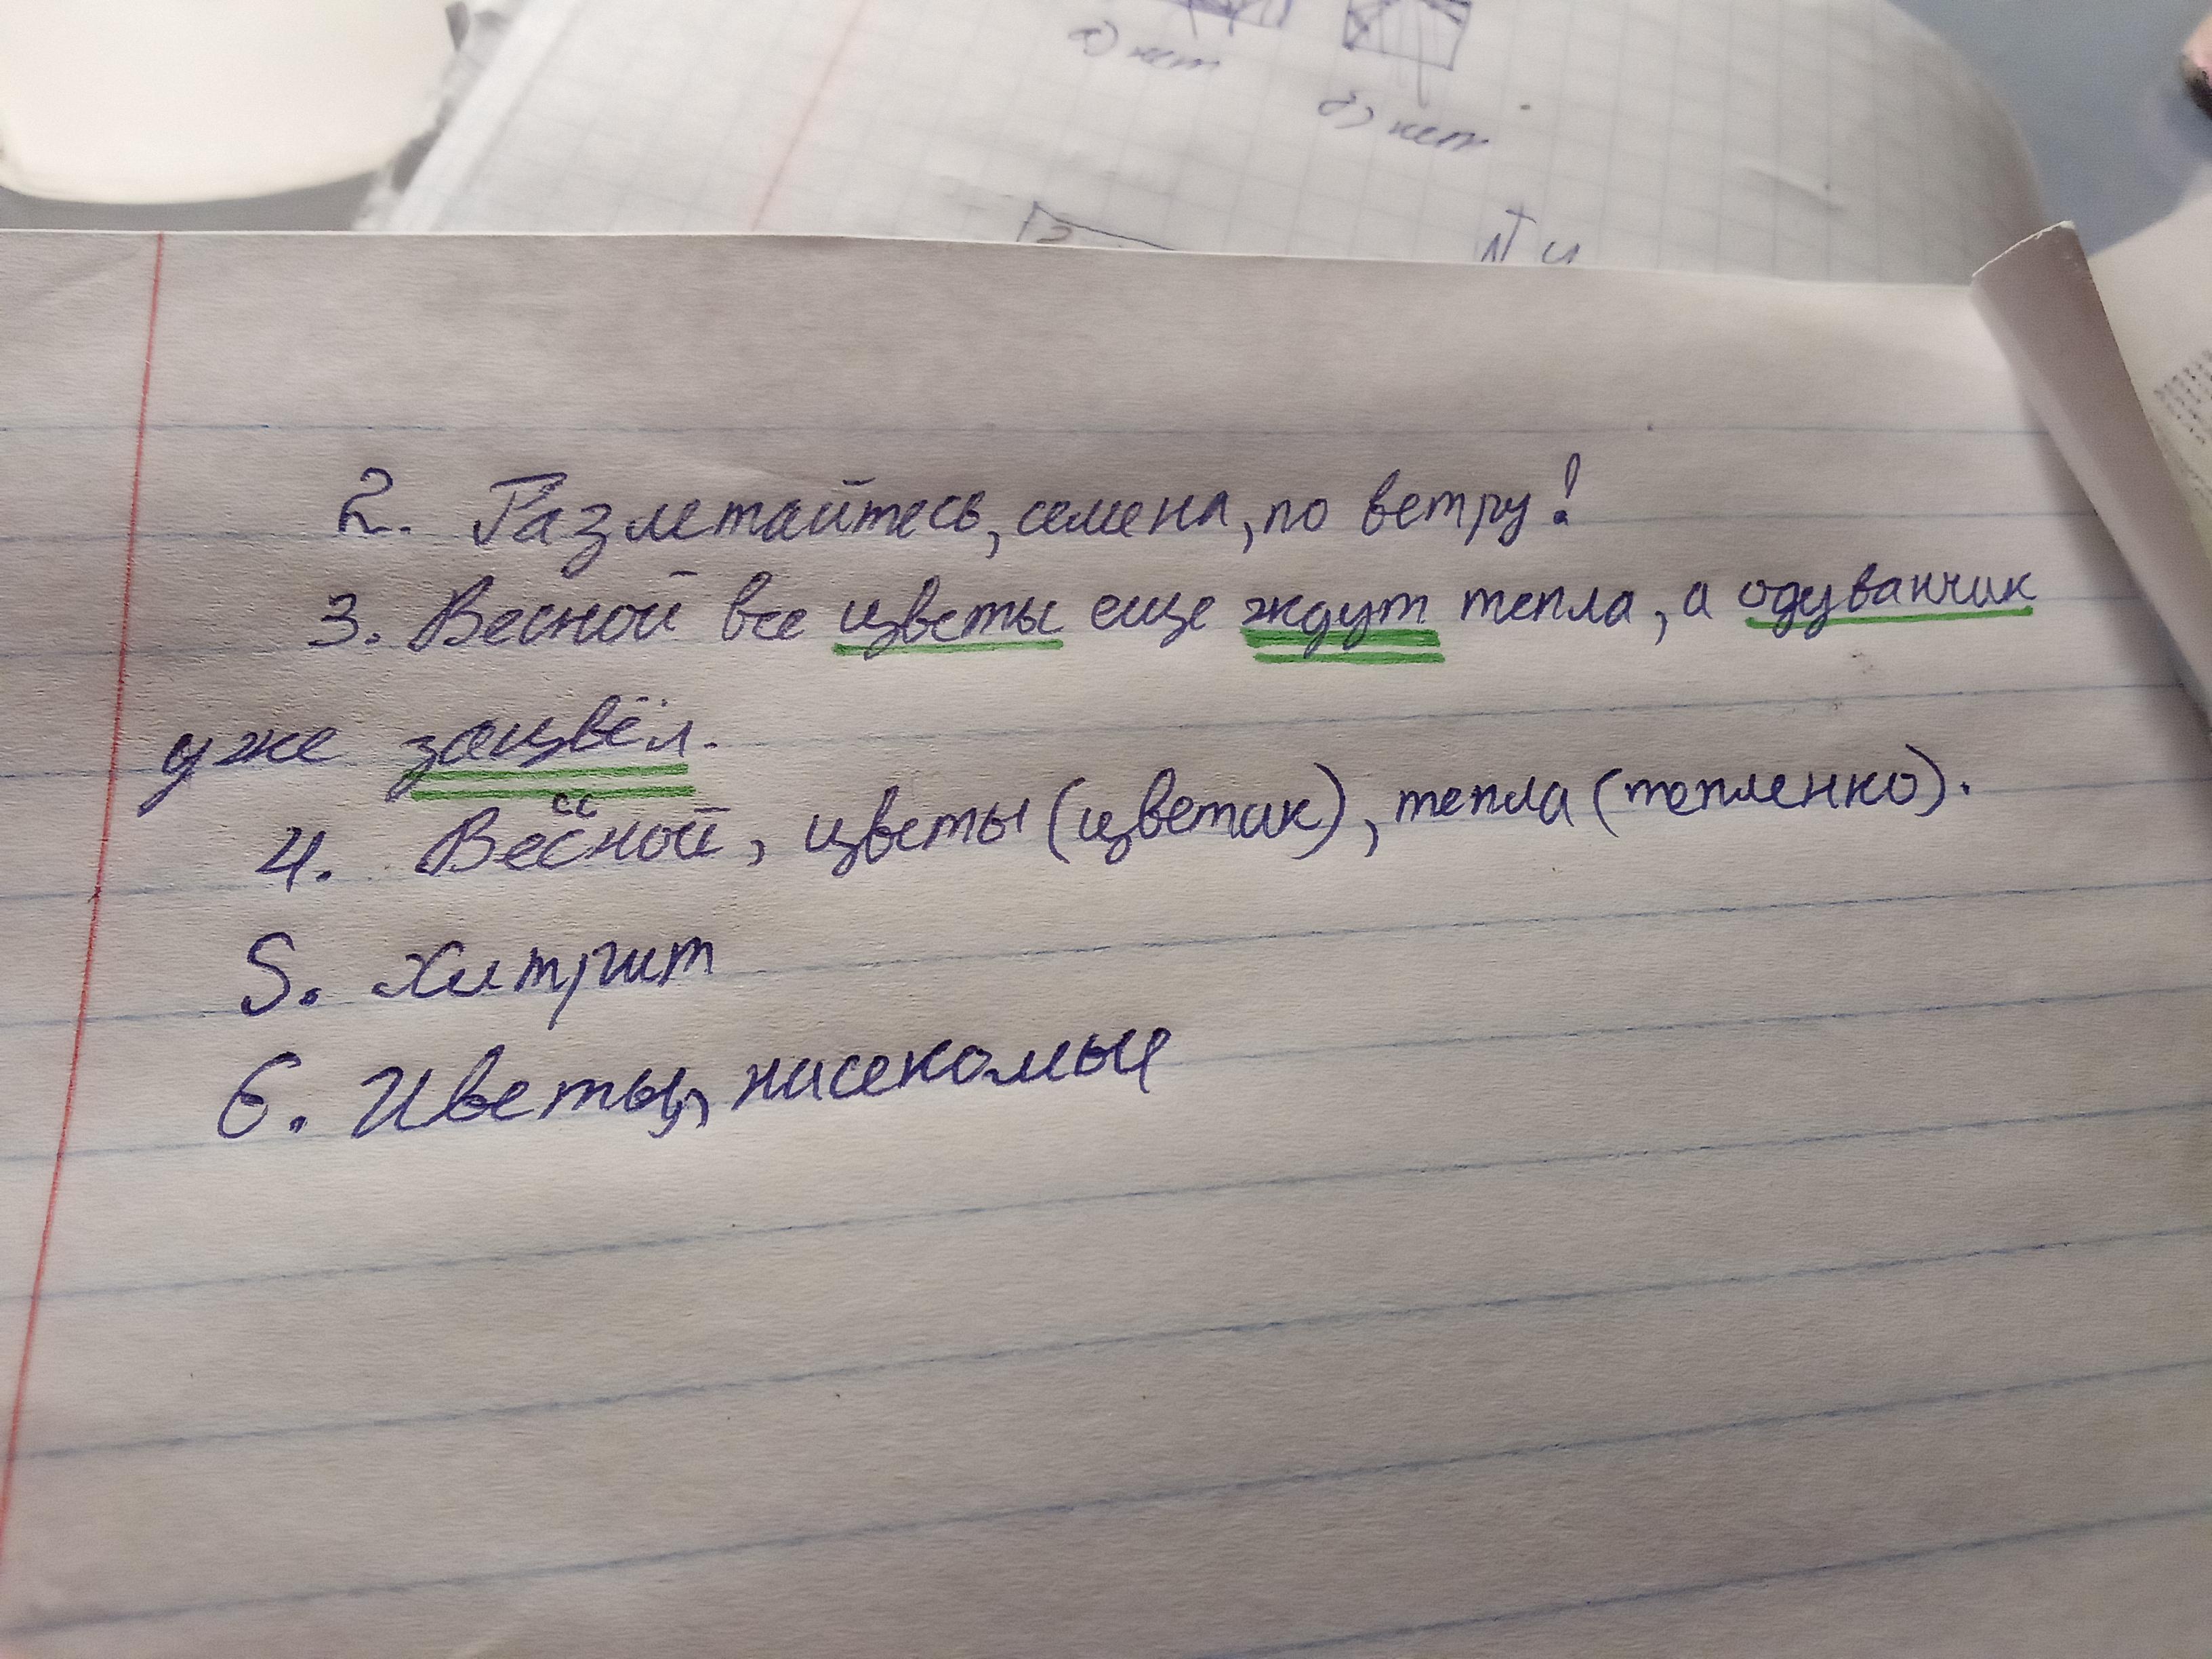 а) нет
б) нет
2. Разлетайтесь, семена, по ветру!
3. Весной все цветы еще ждут тепла, а одуванчик
уже зацвёл.
4. Весной, цветы (цветик), тепла (тепленко).
5. Хитрит
6. Цветы, насекомые